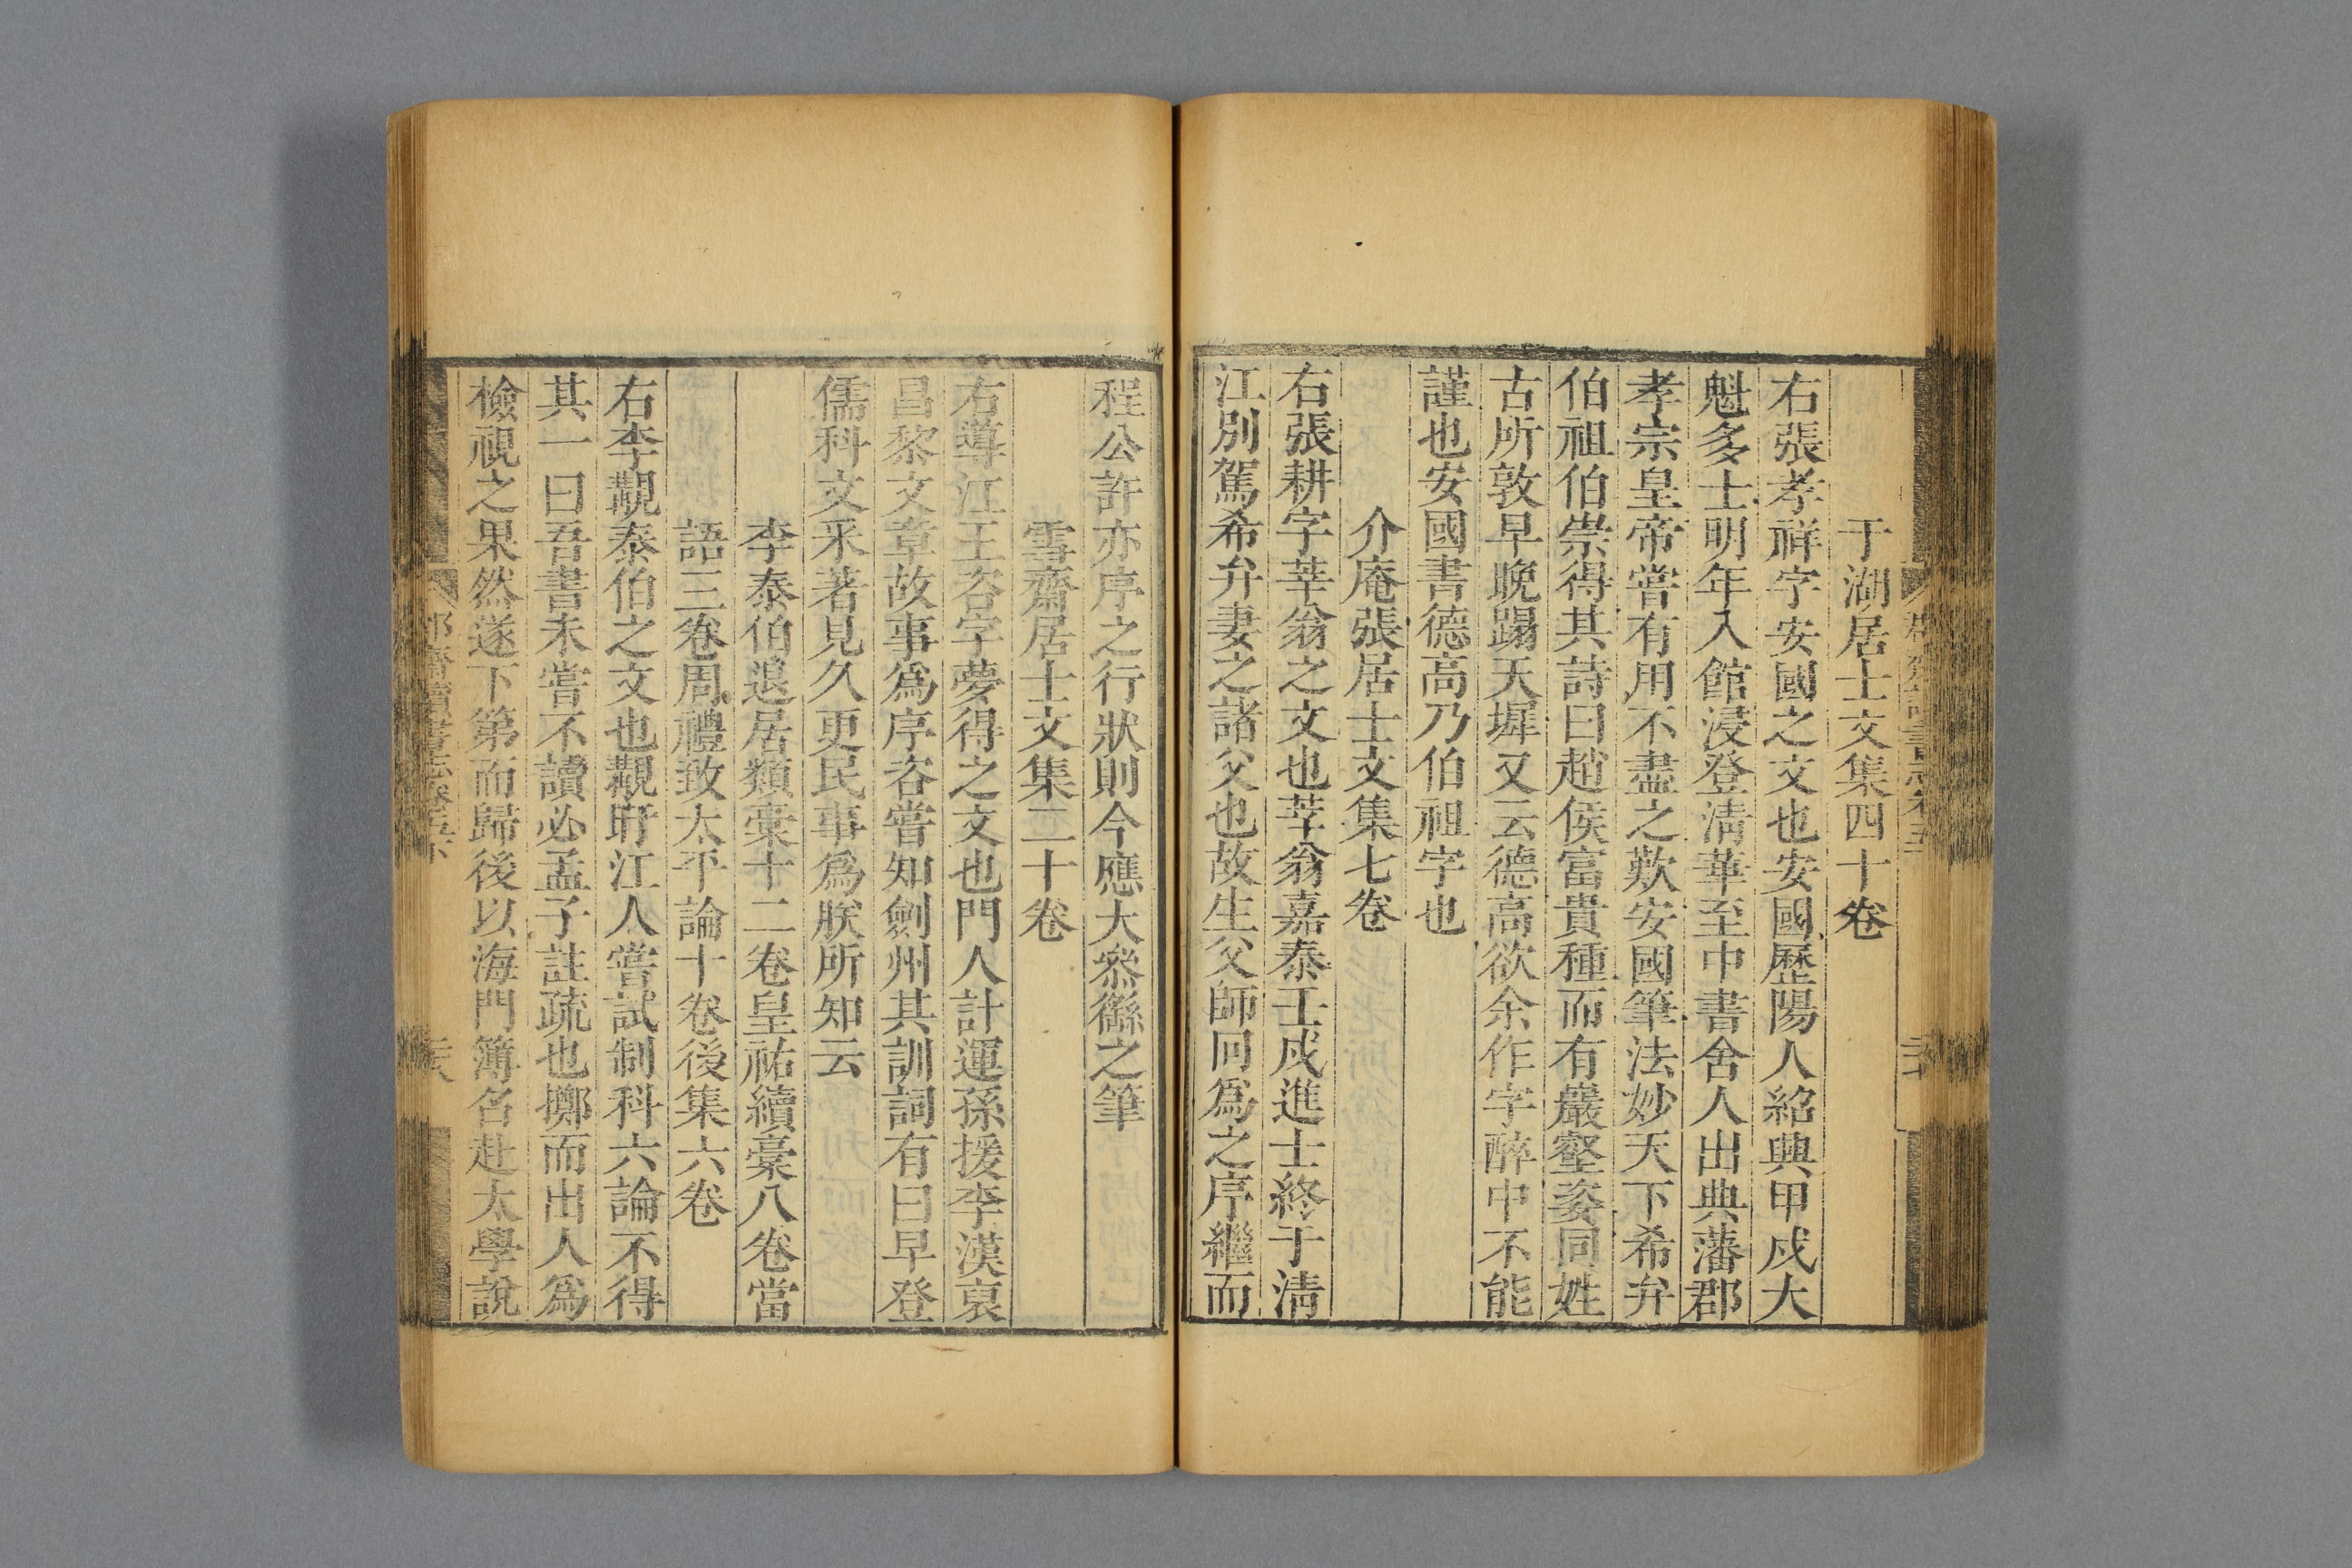 于湖居士文集四十卷
右張孝祥字安國之文也安國歷陽人紹興甲戌大
魁多士明年入館浸登清華至中書舍人出典藩郡
孝宗皇帝嘗有用不盡之歎安國筆法妙天下希弁
伯祖伯崇得其詩曰趙侯富貴種而有巖壑姿同姓
古所敦早晚蹋天墀又云德高欲余作字醉中不能
謹也安國書德高乃伯祖字也
介庵張居士文集七卷
右張耕字莘翁之文也莘翁嘉泰壬戌進士終于清
江別駕希弁妻之諸父也故生父師回爲之序繼而
程公許亦序之行狀則今應大叅𢕟之筆
雪齋居士文集二十卷
右導江王咨字夢得之文也門人計運孫援李漢裒
昌黎文章故事爲序咨嘗知劍州其訓詞有曰早登
儒科文采著見久更民事爲朕所知云
李泰伯退居類稾十二卷皇祐續稾八卷當
語三卷周禮致太平論十卷後集六卷
右李覯泰伯之文也覯盱江人嘗試制科六論不得
其一曰吾書未嘗不讀必孟子註疏也擲而出人爲
檢視之果然遂下第而歸後以海門簿名赴太學說